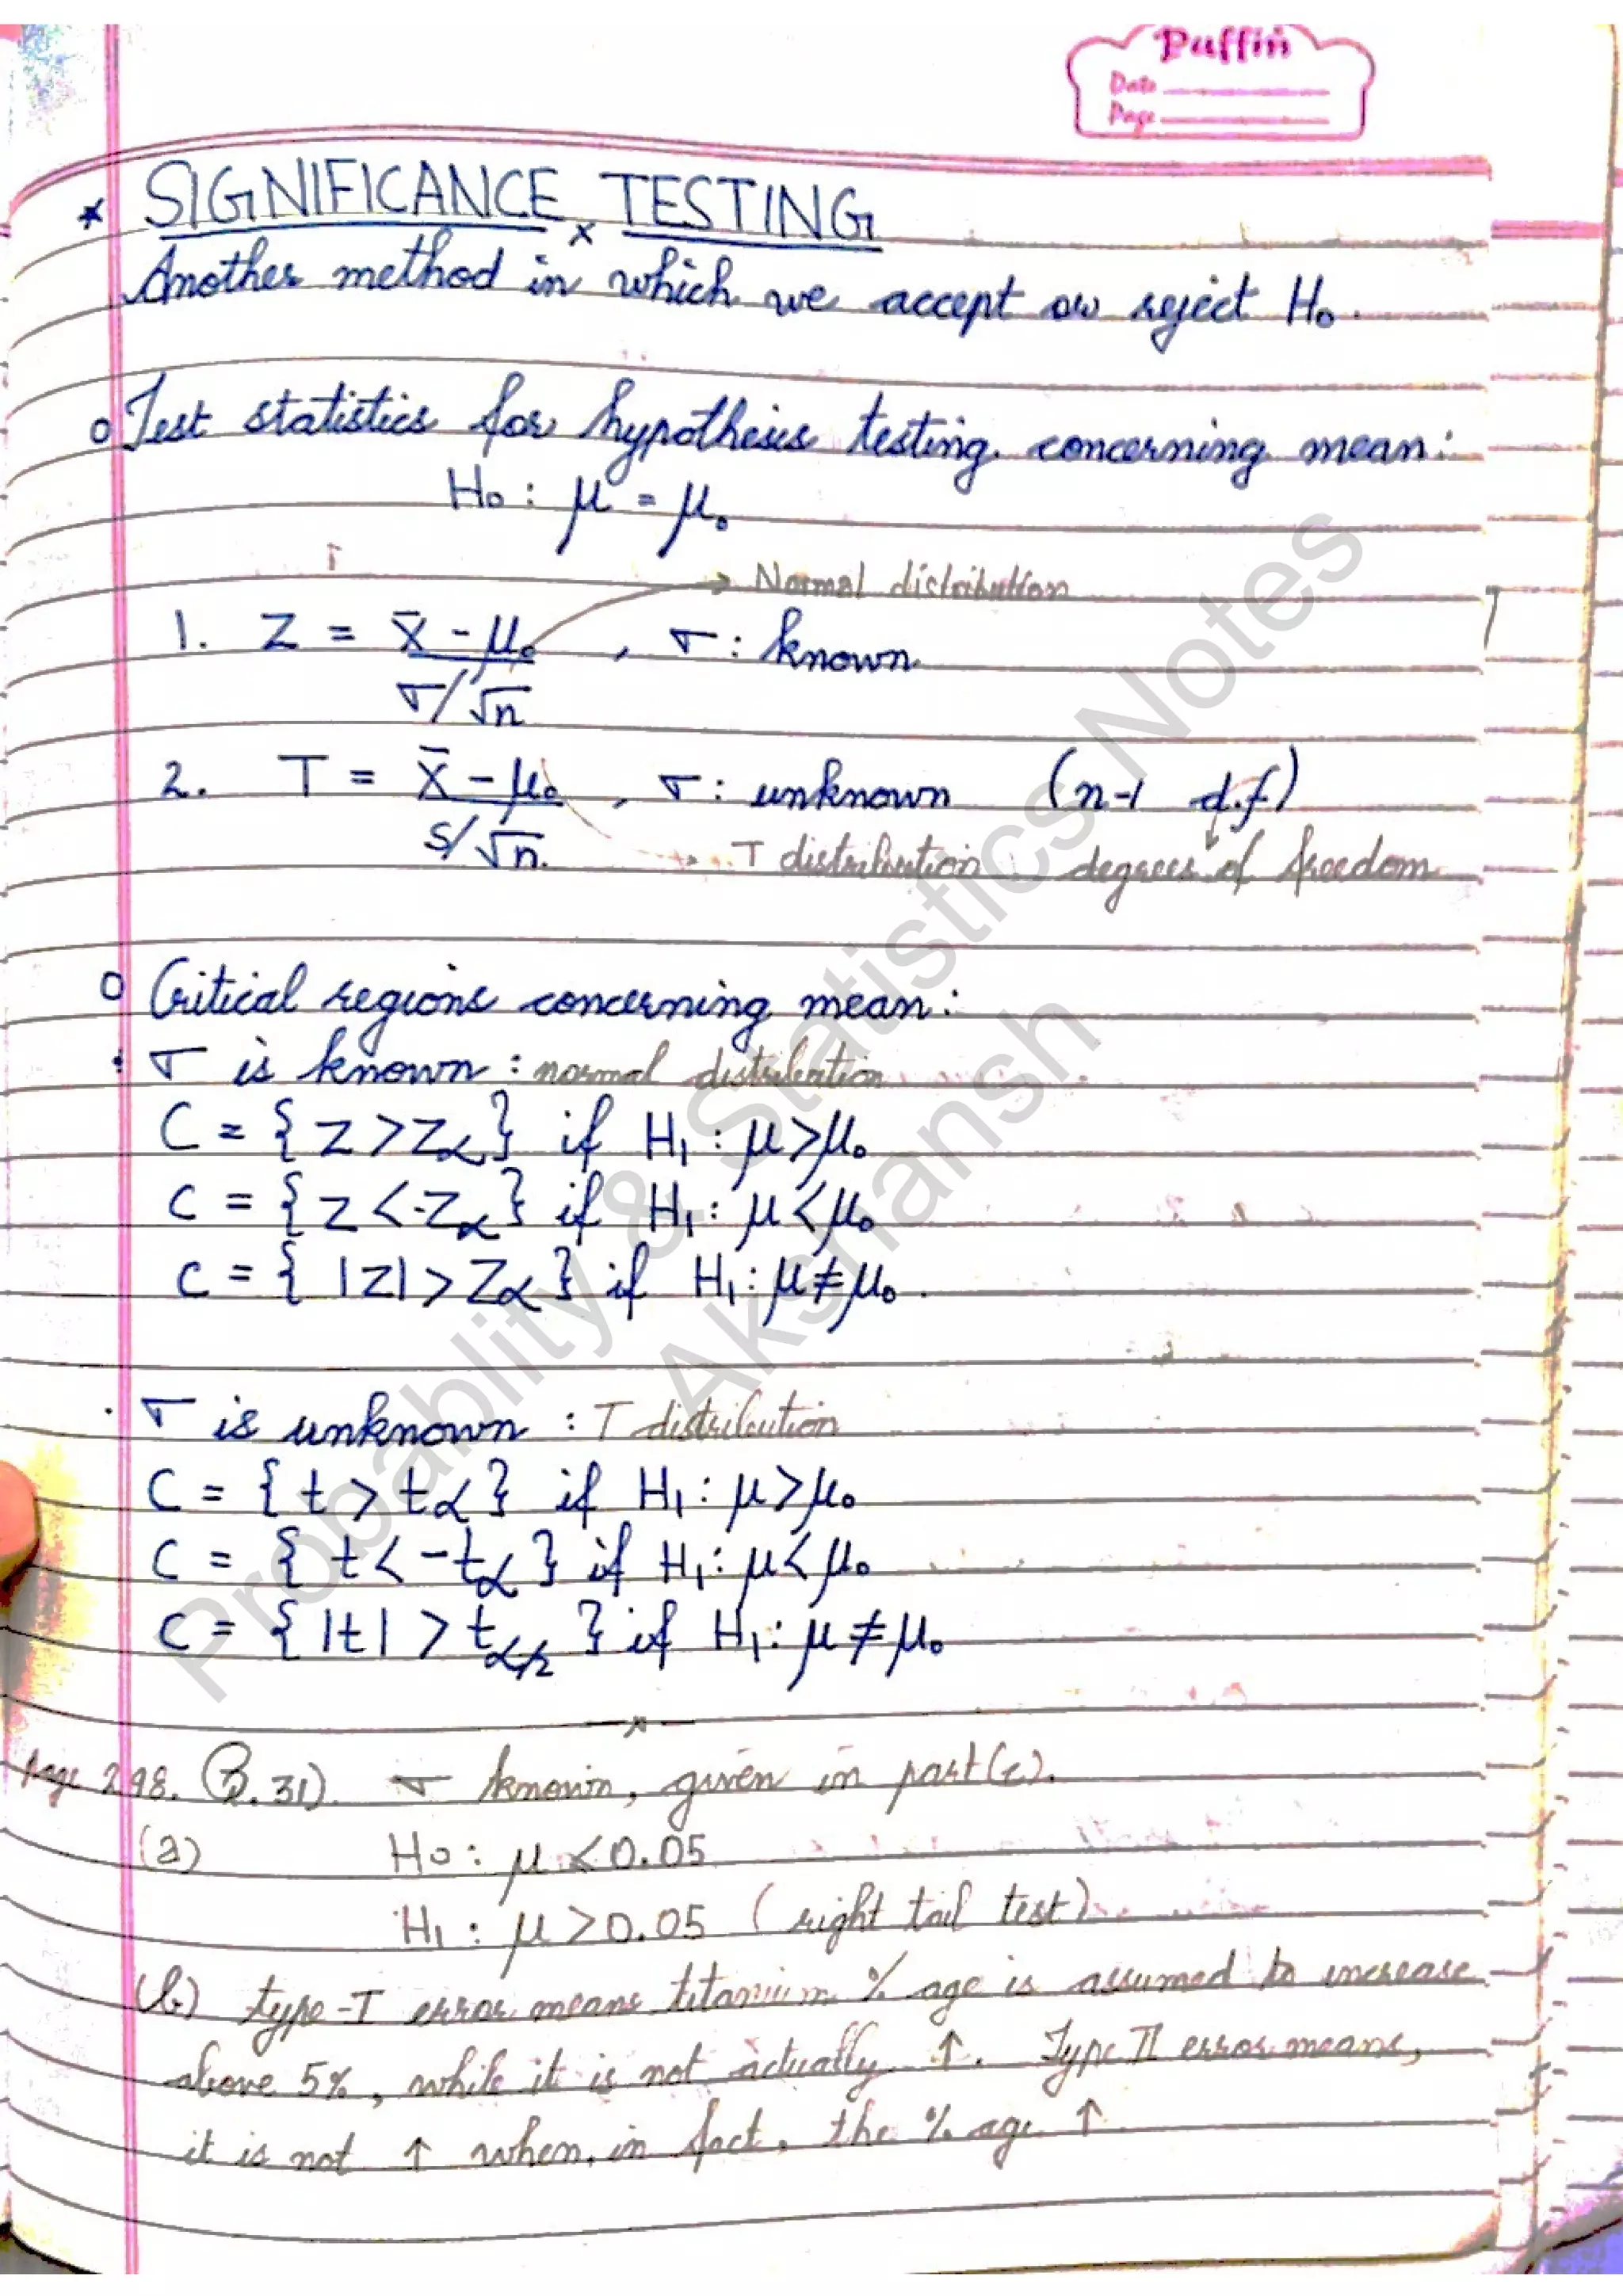 Puffin
Date
Page
* SIGNIFICANCE x TESTING
Another method in which we accept or reject H₀.
o Test statistics for hypothesis testing concerning mean:
H₀ : μ = μ₀
→ Normal distribution
1. Z = (x̄ - μ₀) / (σ/√n) , σ : known
2. T = (x̄ - μ₀) / (s/√n) , σ : unknown (n-1 d.f)
→ T distribution degrees of freedom
o Critical regions concerning mean:
• σ is known : normal distribution
C = { z > zα } if H₁ : μ > μ₀
C = { z < -zα } if H₁ : μ < μ₀
C = { |z| > zα } if H₁ : μ ≠ μ₀.
• σ is unknown : T distribution
C = { t > tα } if H₁ : μ > μ₀
C = { t < -tα } if H₁ : μ < μ₀
C = { |t| > tα/2 } if H₁ : μ ≠ μ₀
—x—
Page 298. 31). σ known, given in part (c).
(a) H₀ : μ < 0.05
H₁ : μ > 0.05 (right tail test)
(b) type-I error means titanium % age is assumed to increase
above 5%, while it is not actually ↑. Type II error means,
it is not ↑ when, in fact, the % age ↑
Probablity & Statistics Notes
Akshansh